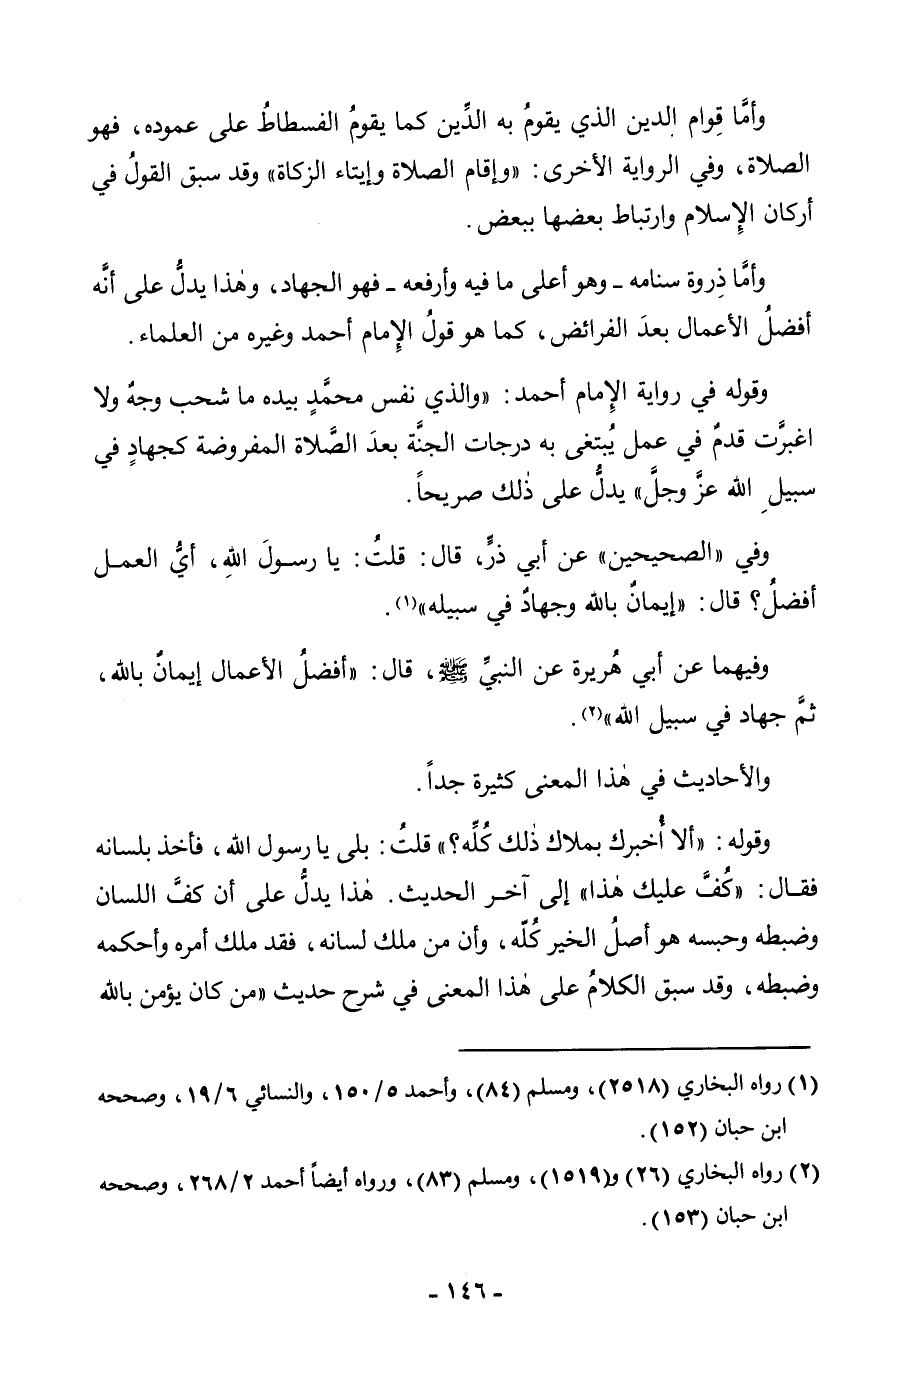 وأمَّا قِوام الدين الذي يقومُ به الدِّين كما يقومُ الفسطاطُ على عموده، فهو
الصلاة، وفي الرواية الأخرى: «وإقام الصلاة وإيتاء الزكاة» وقد سبق القولُ في
أركان الإسلام وارتباط بعضها ببعض.
وأمَّا ذِروة سنامه ـ وهو أعلى ما فيه وأرفعه ـ فهو الجهاد، وهٰذا يدلُّ على أنَّه
أفضلُ الأعمال بعدَ الفرائض، كما هو قولُ الإمام أحمد وغيره من العلماء.
وقوله في رواية الإمام أحمد: «والذي نفس محمَّدٍ بيده ما شحب وجهٌ ولا
اغبرَّت قدمٌ في عمل يُبتغى به درجات الجنَّة بعدَ الصَّلاة المفروضة كجهادٍ في
سبيلِ الله عزَّ وجلَّ» يدلُّ على ذٰلك صريحاً.
وفي «الصحيحين» عن أبي ذرٍّ، قال: قلتُ: يا رسولَ اللهِ، أيُّ العمل
أفضلُ؟ قال: «إيمانٌ بالله وجهادٌ في سبيله»(١).
وفيهما عن أبي هُريرة عن النبيِّ ﷺ، قال: «أفضلُ الأعمال إيمانٌ بالله،
ثمَّ جهاد في سبيل الله»(٢).
والأحاديث في هٰذا المعنى كثيرة جداً.
وقوله: «ألا أُخبرك بملاك ذٰلك كُلِّه؟» قلتُ: بلى يا رسول الله، فأخذ بلسانه
فقال: «كُفَّ عليك هٰذا» إلى آخر الحديث. هٰذا يدلُّ على أن كفَّ اللسان
وضبطه وحبسه هو أصلُ الخير كُلّه، وأن من ملك لسانه، فقد ملك أمره وأحكمه
وضبطه، وقد سبق الكلامُ على هٰذا المعنى في شرح حديث «من كان يؤمن بالله
(١) رواه البخاري (٢٥١٨)، ومسلم (٨٤)، وأحمد ٥/١٥٠، والنسائي ٦/١٩، وصححه
ابن حبان (١٥٢).
(٢) رواه البخاري (٢٦) و(١٥١٩)، ومسلم (٨٣)، ورواه أيضاً أحمد ٢/٢٦٨، وصححه
ابن حبان (١٥٣).
- ١٤٦ -